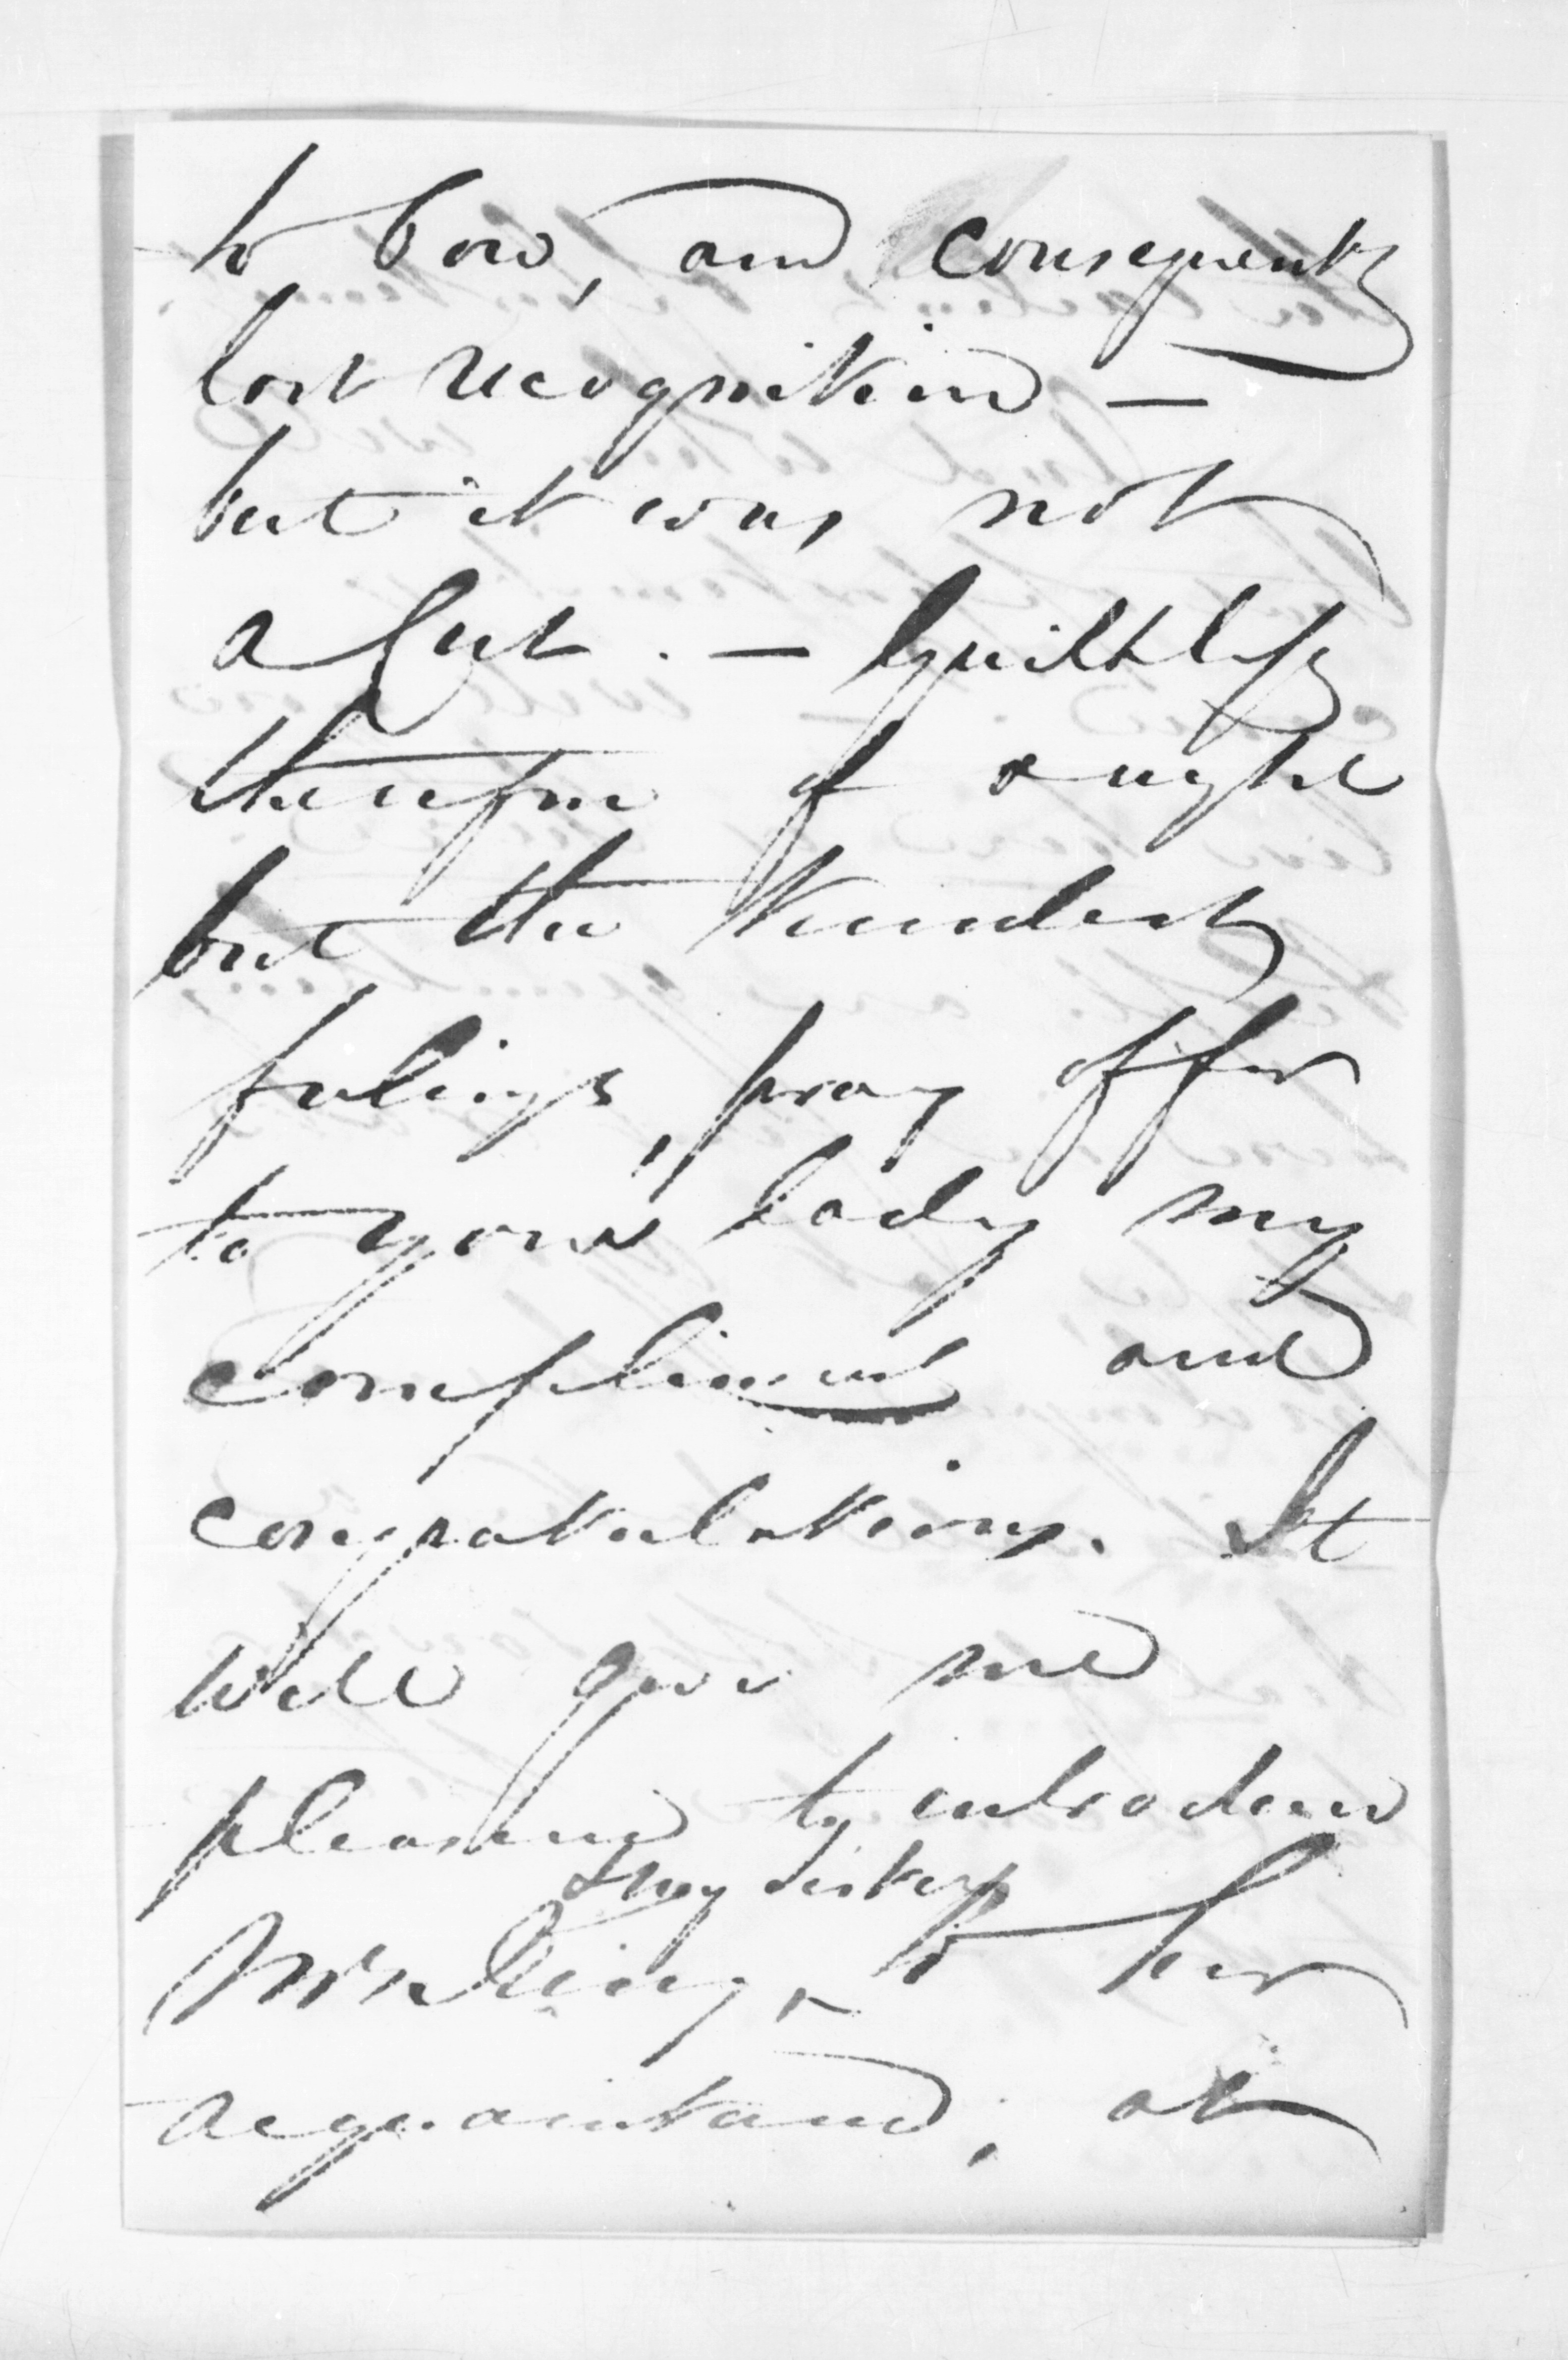 to bow, and consequently
lost recognition —
but it was not
a Cut. — Guiltless
therefore of aught
but the kindest
feelings, pray offer
to your lady my
compliments and
congratulations. It
will give me
pleasure to introduce
& my sisters
Mrs King, ^ to her
acquaintance, at